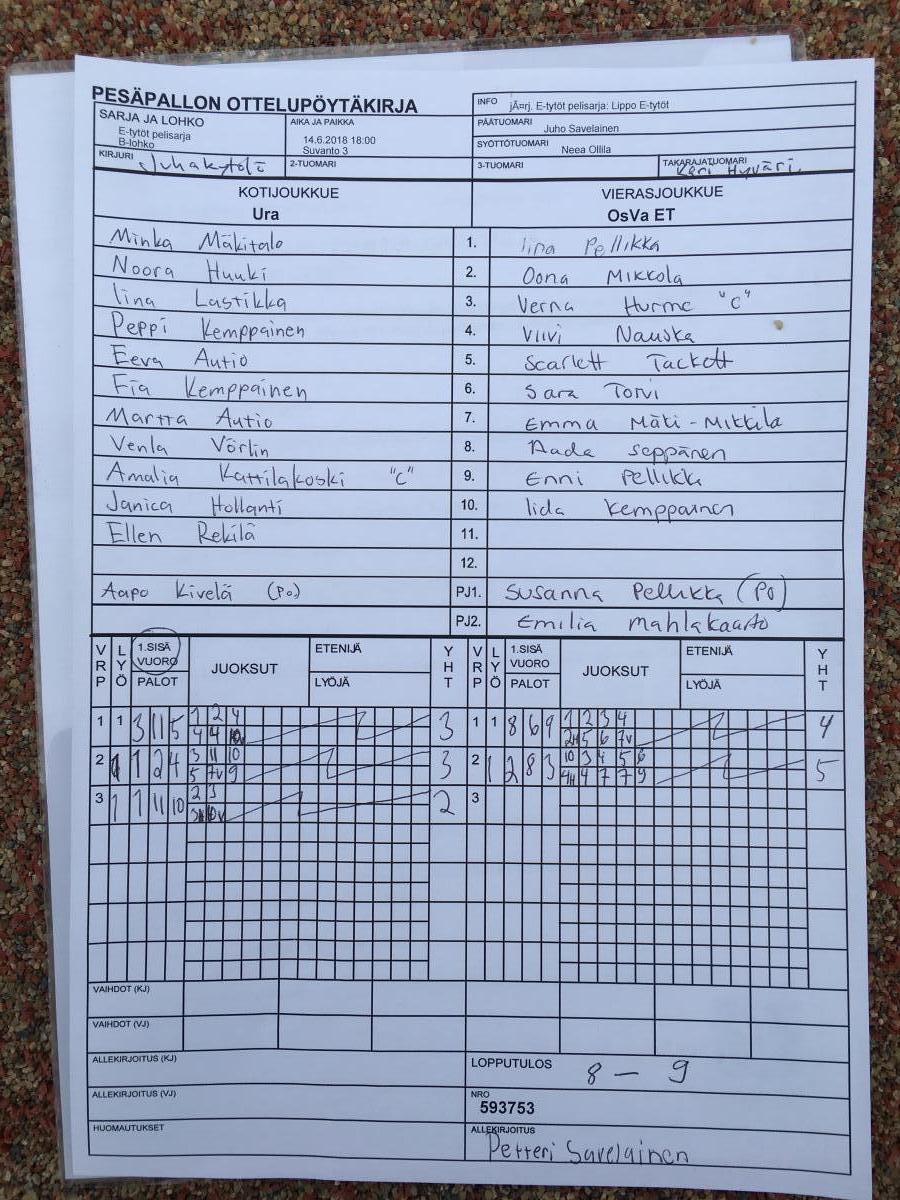 PESÄPALLON OTTELUPÖYTÄKIRJA
INFO jÃ¤rj. E-tytöt pelisarja: Lippo E-tytöt
SARJA JA LOHKO
E-tytöt pelisarja
B-lohko
AIKA JA PAIKKA
14.6.2018 18:00
Suvanto 3
PÄÄTUOMARI Juho Savelainen
SYÖTTÖTUOMARI Neea Ollila
KIRJURI
2-TUOMARI
3-TUOMARI
TAKARAJATUOMARI Hyväri
KOTIJOUKKUE VIERASJOUKKUE
Ura OsVa ET
Minka Mäkitalo 1. Iina Pellikka
Noora Huuki 2. Oona Mikkola
Iina Lastikka 3. Verna Hurme "C"
Peppi Kemppainen 4. Viivi Nauska
Eeva Autio 5. Scarlett Tackett
Fia Kemppainen 6. Sara Torvi
Martta Autio 7. Emma Mäki-Mikkila
Venla Vörlin 8. Aada Seppänen
Amalia Kattilakoski "C" 9. Enni Pellikka
Janica Hollanti 10. Iida Kemppainen
Ellen Rekilä 11.
12.
Aapo Kivelä (Po) PJ1. Susanna Pellikka (Po)
PJ2. Emilia Mahlakaarto
VRP LYÖ 1.SISÄ VUORO PALOT JUOKSUT ETENIJÄ LYÖJÄ YHT VRP LYÖ 1.SISÄ VUORO PALOT JUOKSUT ETENIJÄ LYÖJÄ YHT
1 1 3 11 5 1 2 4 3 1 1 8 6 9 1 2 3 4 4
4 4 2H 5 6 7v
2 1 1 2 4 3 11 10 3 2 1 2 8 3 10 3 4 5 6 5
5 7v 9 4H 4 7 7 9
3 1 1 11 10 2 3 2 3
VAIHDOT (KJ)
VAIHDOT (VJ)
ALLEKIRJOITUS (KJ)
LOPPUTULOS 8 – 9
ALLEKIRJOITUS (VJ)
NRO
593753
HUOMAUTUKSET
ALLEKIRJOITUS
Petteri Savelainen